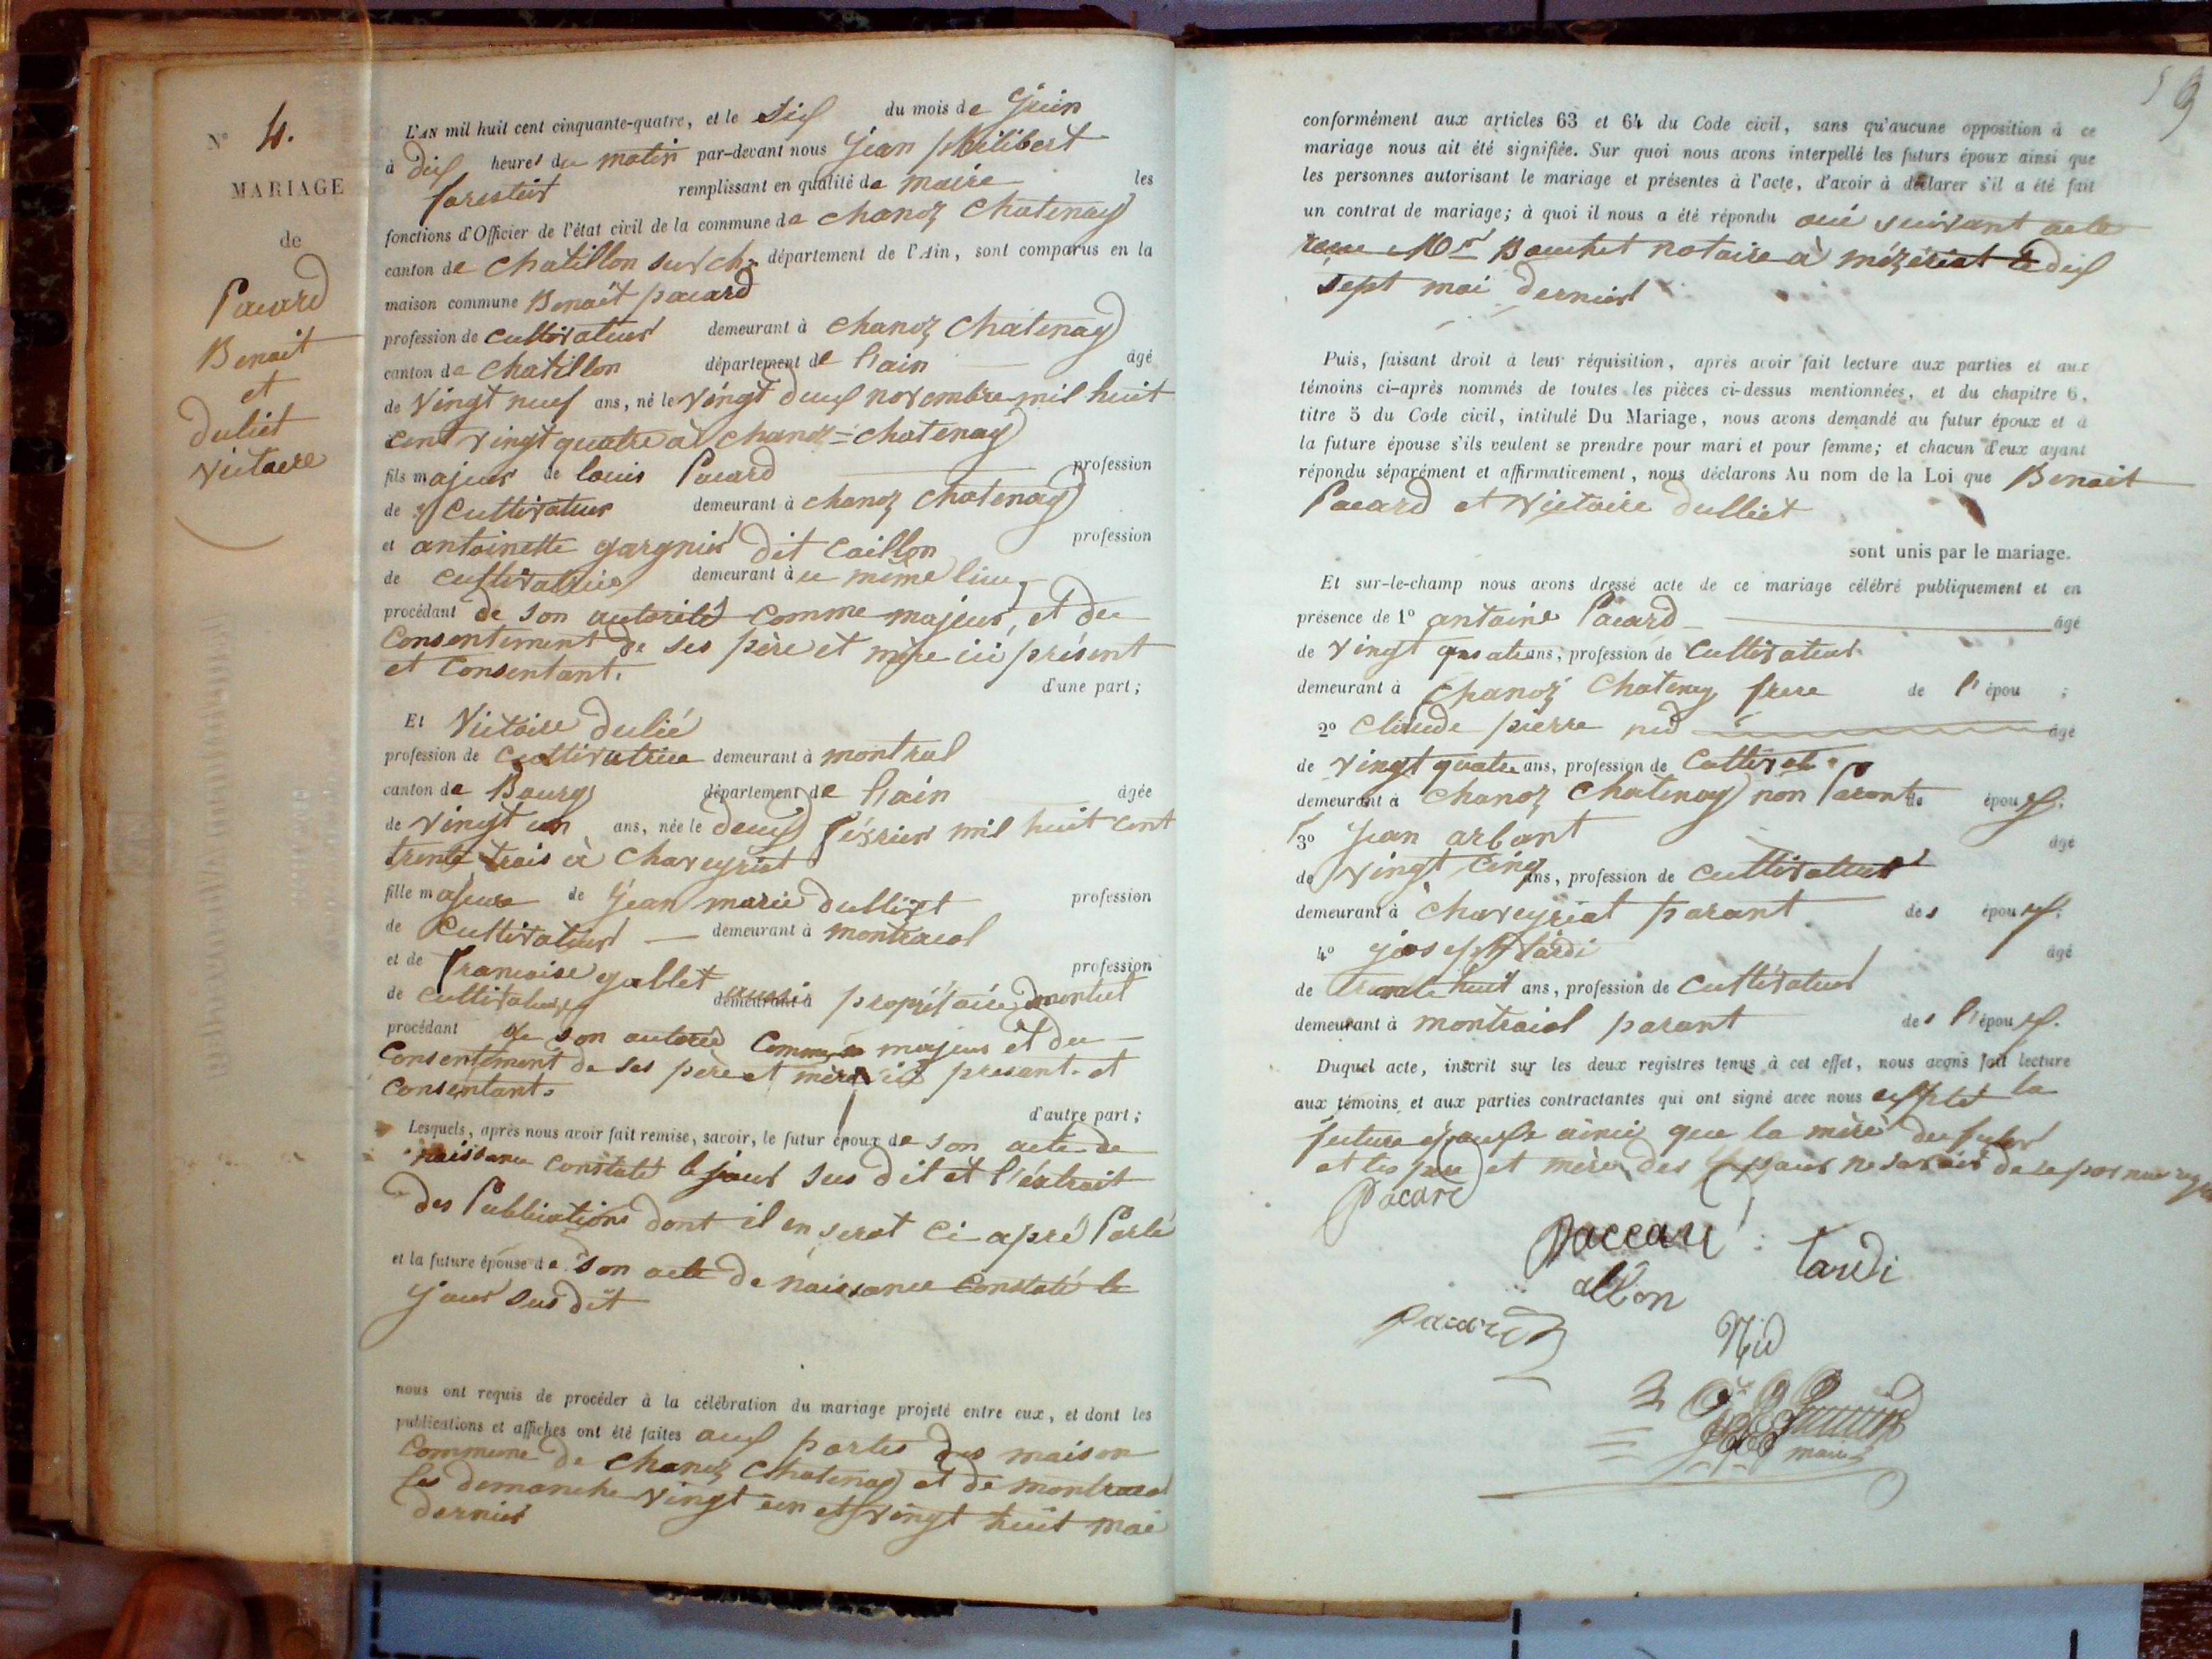 N° 4.
MARIAGE
de
Pacard
Benait
et
duliet
victoire
L'AN mil huit cent cinquante-quatre, et le six du mois de Juin
à dix heures du matin par-devant nous Jean philibert
forestier remplissant en qualité de maire les
fonctions d'Officier de l'état civil de la commune de chanoz chatenay
canton de chatillon sur ch. département de l'Ain, sont comparus en la
maison commune Benait pacard
profession de cultivateur demeurant à chanoz chatenay
canton de chatillon département de l'ain âgé
de vingt neuf ans, né le vingt deux novembre mil huit
cent vingt quatre à chanoz-chatenay
fils majeur de louis Pacard profession
de cultivateur demeurant à chanoz chatenay
et antoinette gargnier dit caillon profession
de cultivatrice demeurant à ce même lieu,
procédant de son autorité comme majeur, et du
consentement de ses père et mère ici présent
et consentant.
d'une part;
Et Victoire dulié
profession de cultivatrice demeurant à
canton de Bourg département de l'ain âgée
de vingt un ans, née le deux février mil huit cent
trente trois à chaveyriat
fille majeure de Jean marie dulliet profession
de cultivateur demeurant à montracol
et de francoise gallet profession
de demeurant à aussi propriétaire
procédant de son comme majeur et du
consentement de ses père et mère ici presant et
consentant.
d'autre part;
Lesquels, après nous avoir fait remise, savoir, le futur époux de son acte de
naissance constaté le jour sus dit et l'extrait
des Publications dont il en serat ci-apré Parlé
et la future épouse de son acte de naissance constaté le
jour sus dit
nous ont requis de procéder à la célébration du mariage projeté entre eux, et dont les
publications et affiches ont été faites aux portes des maison
commune de chanoz chatenay et de montracol
les demanche vingt un et vingt huit mai
dernier
59
conformément aux articles 63 et 64 du Code civil, sans qu'aucune opposition à ce
mariage nous ait été signifiée. Sur quoi nous avons interpellé les futurs époux ainsi que
les personnes autorisant le mariage et présentes à l'acte, d'avoir à déclarer s'il a été fait
un contrat de mariage; à quoi il nous a été répondu oui suivant acte
Mr Bouchet notaire à mézériat le dix
sept mai dernier
Puis, faisant droit à leur réquisition, après avoir fait lecture aux parties et aux
témoins ci-après nommés de toutes les pièces ci-dessus mentionnées, et du chapitre 6,
titre 5 du Code civil, intitulé Du Mariage, nous avons demandé au futur époux et à
la future épouse s'ils veulent se prendre pour mari et pour femme; et chacun d'eux ayant
répondu séparément et affirmativement, nous déclarons Au nom de la Loi que Benait
Pacard et Victoire dulliet
sont unis par le mariage.
Et sur-le-champ nous avons dressé acte de ce mariage célébré publiquement et en
présence de 1° antoine Pacard âgé
de vingt ans, profession de cultivateur
demeurant à chanoz chatenay frere de l'épou ;
2° claude pierre nid âgé
de vingt quatre ans, profession de
demeurant à chanoz chatenay non Parant de époux;
3° Jean arbant âgé
de vingt cinq ans, profession de cultivateur
demeurant à chaveyriat parant des époux;
4° joseph tardi âgé
de huit ans, profession de cultivateur
demeurant à parant des l'époux.
Duquel acte, inscrit sur les deux registres tenus à cet effet, nous avons fait lecture
aux témoins et aux parties contractantes qui ont signé avec nous la
future ainsi que la mère du futur
et les père et mère des
Pacard
paccard
tardi
Nid
maire